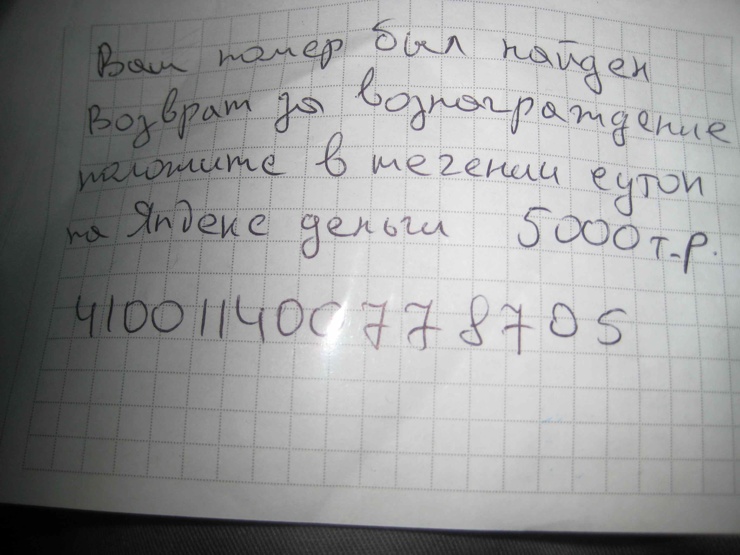 Ваш номер был найден
Возврат за вознаграждение
положите в течении сутои
на Яндекс деньги 5000 т-р.
410011400778705